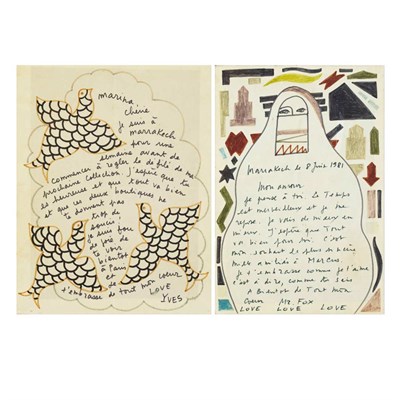 marina,
chérie
je suis à
marrakech
pour une
semaine avant de
commencer à régler le défilé de ma
prochaine collection. j'espère que tu
es heureuse et que tout va bien
et que ces deux boutiques ne
te donnent pas
trop de
soucis.
je suis fou
de joie de
te voir
bientôt
à Paris
et je
t'embrasse de tout mon cœur
LOVE
YVES
Marrakech le 8 Juin 1981
Mon amour
je pense à toi Le Temps
est merveilleux et je me
repose. je vais de mieux en
mieux. J'espère que Tout
va bien pour toi. c'est
mon souhait le plus sincère
mes amitiés à Marcus.
je t'embrasse comme je t'aime
c'est à dire, comme tu sais
A bientôt de Tout mon
Cœur Mr. Fox
LOVE LOVE LOVE